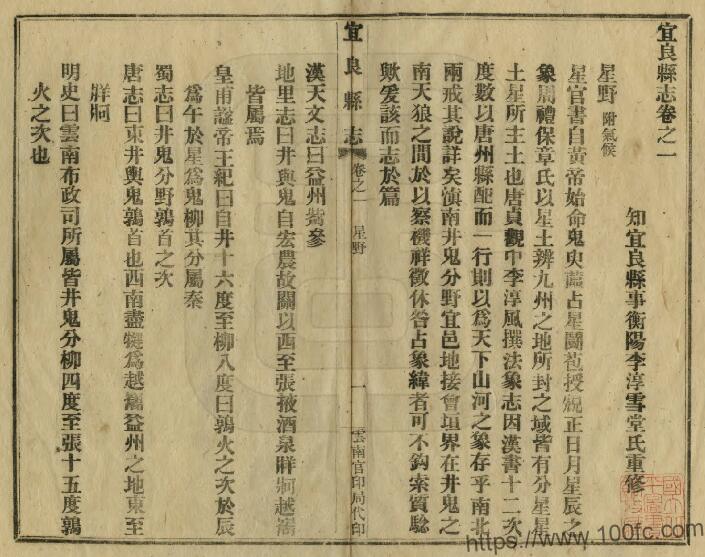 宜良縣志卷之一
知宜良縣事衡陽李淳雪堂氏重修
星野 附氣候
星官書自黃帝始命鬼臾蓲占星鬭苞授規正日月星辰之
象周禮保章氏以星土辨九州之地所封之域皆有分星星
土星所主土也唐貞觀中李淳風撰法象志因漢書十二次
度數以唐州縣配而一行則以為天下山河之象存乎南北
兩戒其說詳矣滇南井鬼分野宜邑地接會垣界在井鬼之
南天狼之間於以察機祥徵休咎占象緯者可不鈎索質驗
歟爰該而志於篇
宜良縣志
卷之一 星野
一
雲南官印局代印
漢天文志曰益州觜參
地里志曰井與鬼自宏農故關以西至張掖酒泉牂牁越巂
皆屬焉
皇甫謐帝王紀曰自井十六度至柳八度曰鶉火之次於辰
為午於星為鬼柳其分屬秦
蜀志曰井鬼分野鶉首之次
唐志曰東井輿鬼鶉首也西南盡犍為越巂益州之地東至
牂牁
明史曰雲南布政司所屬皆井鬼分柳四度至張十五度鶉
火之次也
https://www.100fc.com